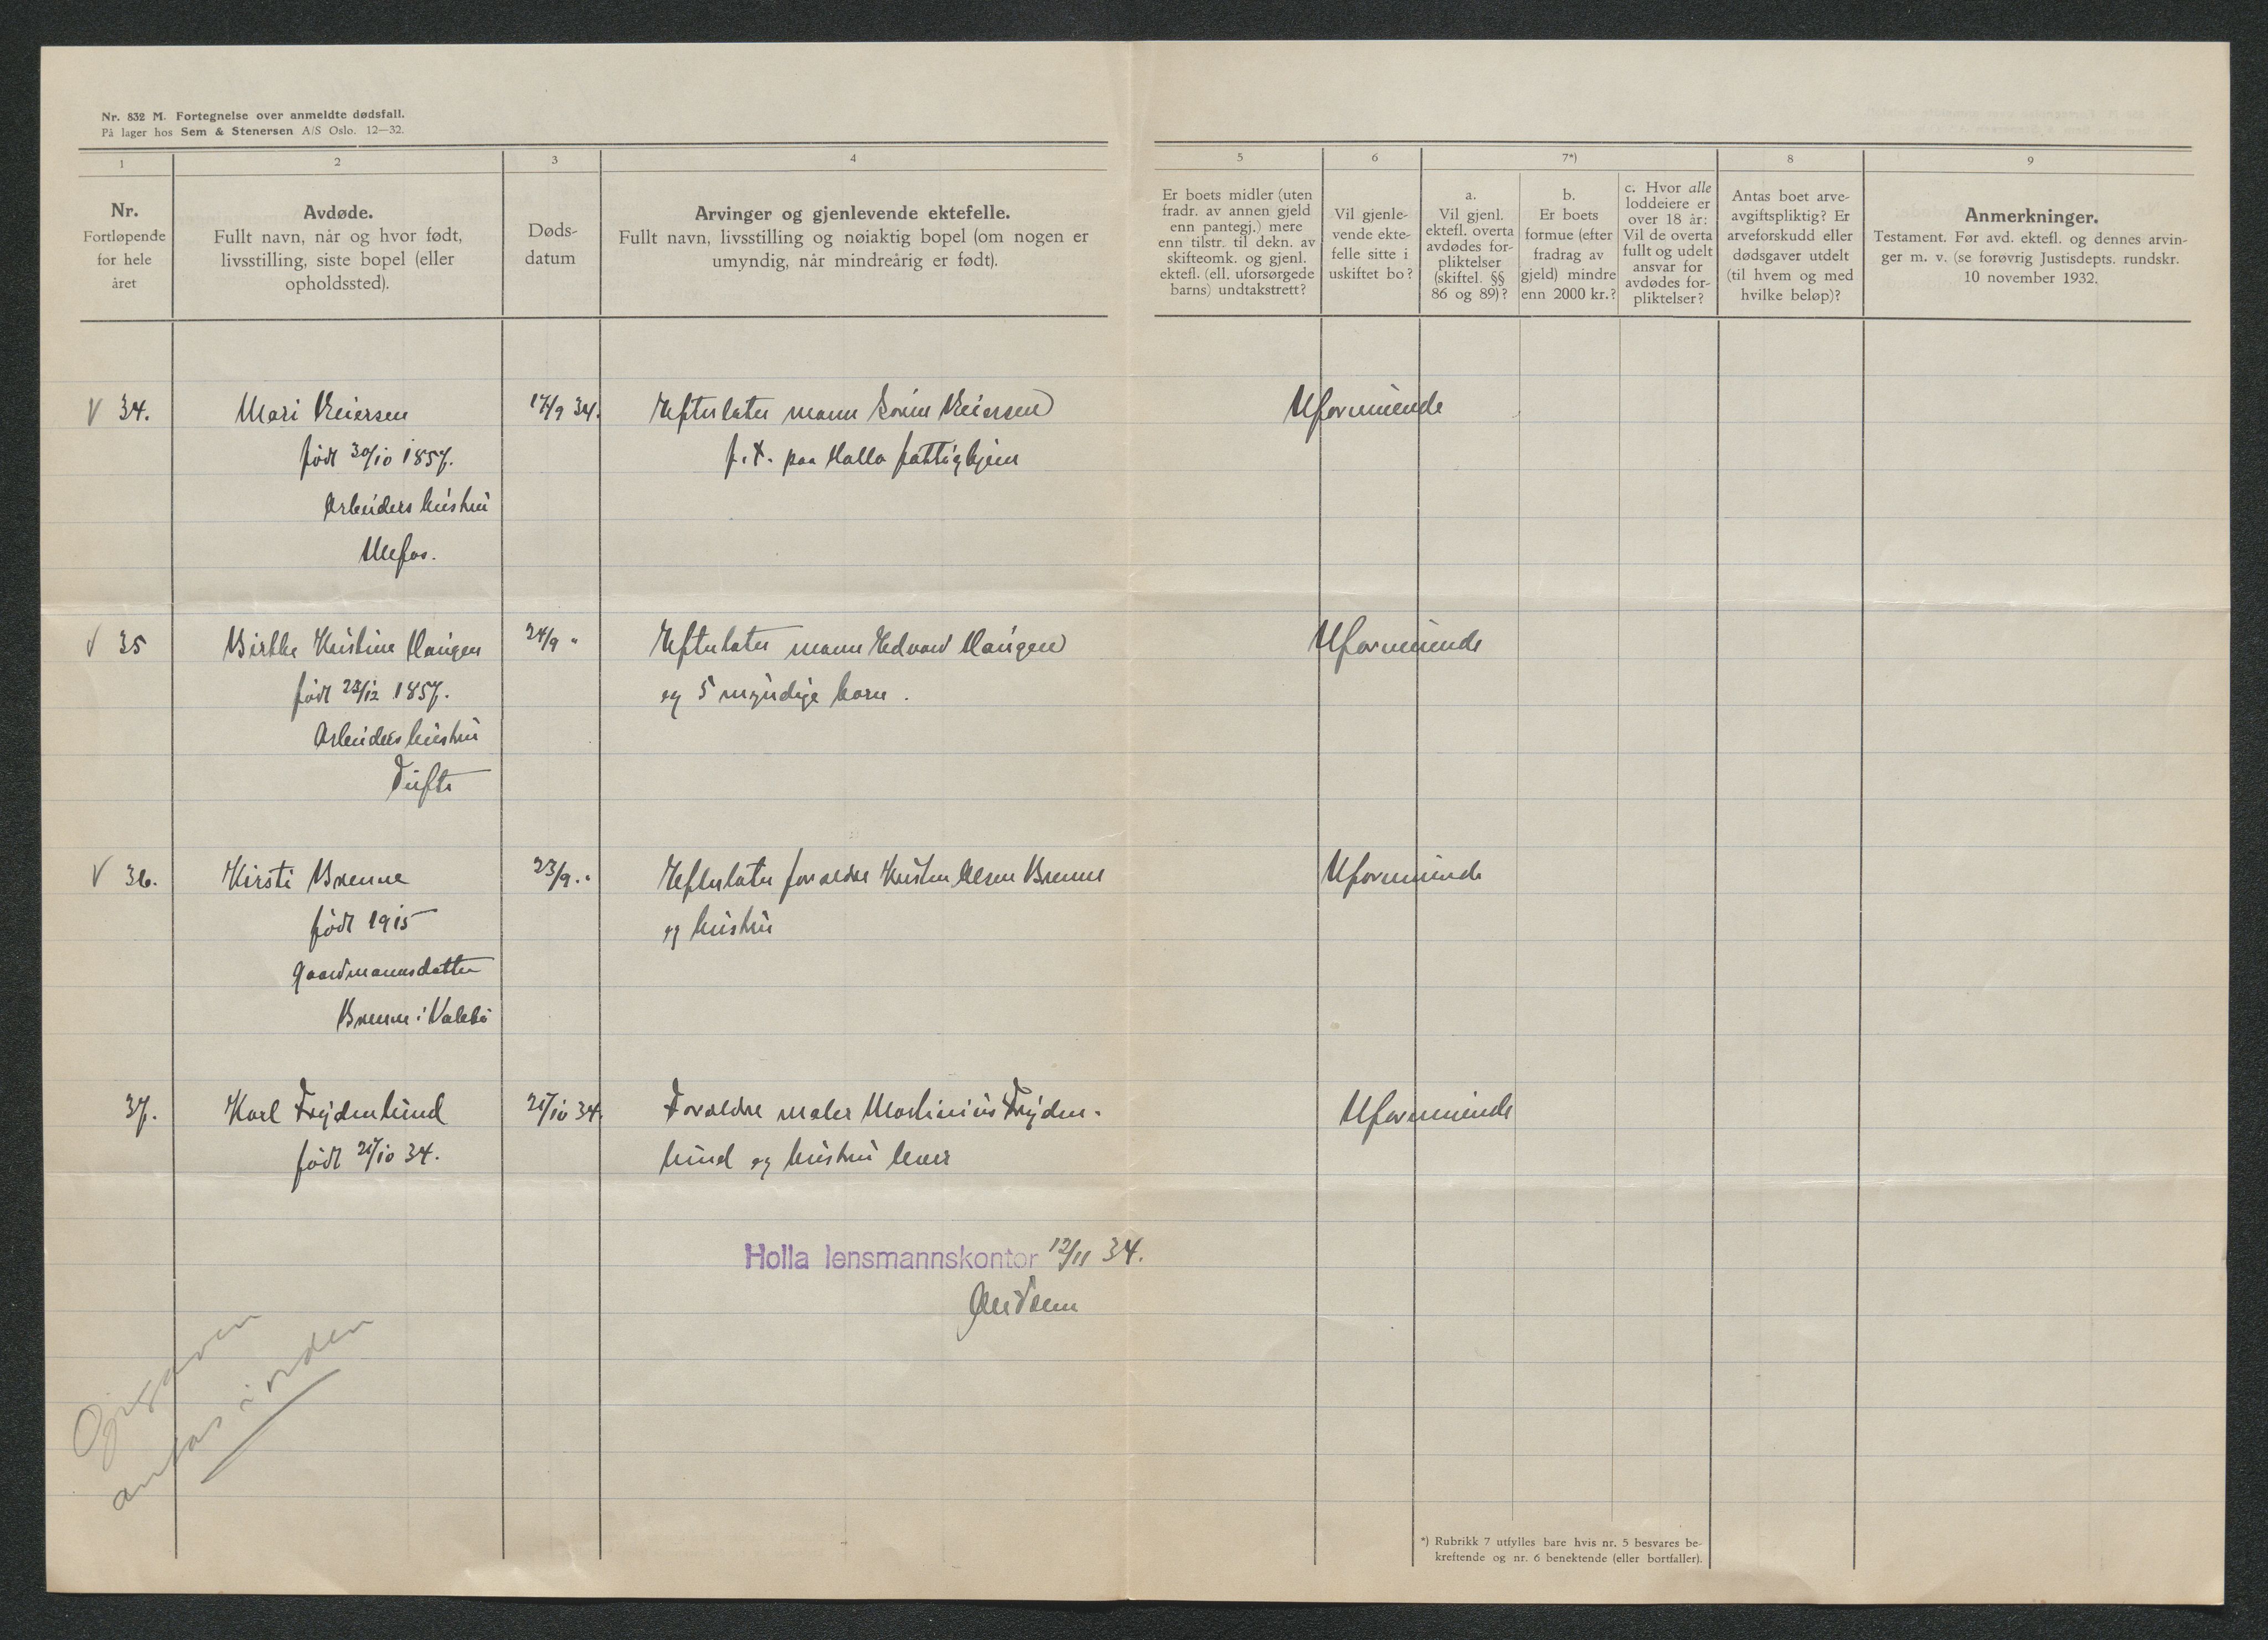 Nr. 832 M. Fortegnelse over anmeldte dødsfall.
På lager hos Sem & Stenersen A/S Oslo. 12—32.
1
2
3
4
5
6
7*)
8
9
Nr.
Fortløpende
for hele
året
Avdøde.
Fullt navn, når og hvor født,
livsstilling, siste bopel (eller
opholdssted).
Døds-
datum
Arvinger og gjenlevende ektefelle.
Fullt navn, livsstilling og nøiaktig bopel (om nogen er
umyndig, når mindreårig er født).
Er boets midler (uten
fradr. av annen gjeld
enn pantegj.) mere
enn tilstr. til dekn. av
skifteomk. og gjenl.
ektefl. (ell. uforsørgede
barns) undtakstrett?
Vil gjenle-
vende ekte-
felle sitte i
uskiftet bo?
a.
Vil gjenl.
ektefl. overta
avdødes for-
pliktelser
(skiftel. §§
86 og 89)?
b.
Er boets
formue (efter
fradrag av
gjeld) mindre
enn 2000 kr.?
c. Hvor alle
loddeiere er
over 18 år:
Vil de overta
fullt og udelt
ansvar for
avdødes for-
pliktelser?
Antas boet arve-
avgiftspliktig? Er
arveforskudd eller
dødsgaver utdelt
(til hvem og med
hvilke beløp)?
Anmerkninger.
Testament. Før avd. ektefl. og dennes arvin-
ger m. v. (se forøvrig Justisdepts. rundskr.
10 november 1932.
V 34. Mari Reiersen 17/9 34. Efterlater mann Reiersen Uformuende
født 30/10 1857. f.t. paa Holla fattighjem
Arbeiders hustru
Ulefos.
V 35 Birthe Kristine Haugen 24/9 " Efterlater mann Edvard Haugen Uformuende
født 23/12 1857. og 5 myndige barn.
Arbeiders hustru
Tufte
V 36. Kirsti Brenne 23/9 " Efterlater forældre Kristen Olsen Brenne Uformuende
født 1915 og hustru
Gaardmannsdatter
Brenne i Valebø
37. Karl Frydenlund 25/10 34. Forældre maler Martinius Fryden- Uformuende
født 25/10 34. lund og hustru lever
Holla lensmannskontor 12/11 34.
Opgaven
antas i orden
*) Rubrikk 7 utfylles bare hvis nr. 5 besvares be-
kreftende og nr. 6 benektende (eller bortfaller).